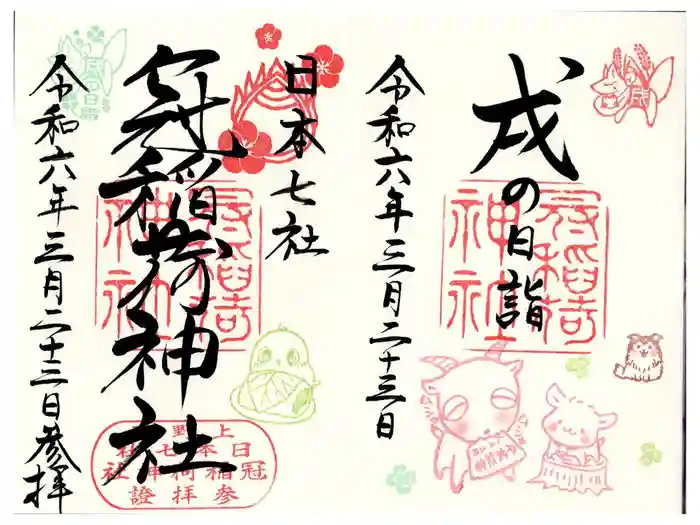 戌の日詣
令和六年三月二十三日
日本七社
冠稲荷神社
令和六年三月二十三日参拝
冠稲荷
神社
上野
日本七社
冠稲荷神社
参拝證